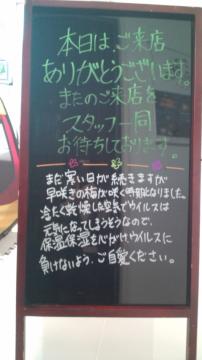 本日は、ご来店
ありがとうございます。
またのご来店を
スタッフ一同
お待ちしております。
まだ寒い日が続きますが
早咲きの梅が咲く時期となりました。
冷たく乾燥した空気でウイルスは
元気になってしまうそうなので、
保温保湿を心がけ、ウイルスに
負けないよう、ご自愛ください。